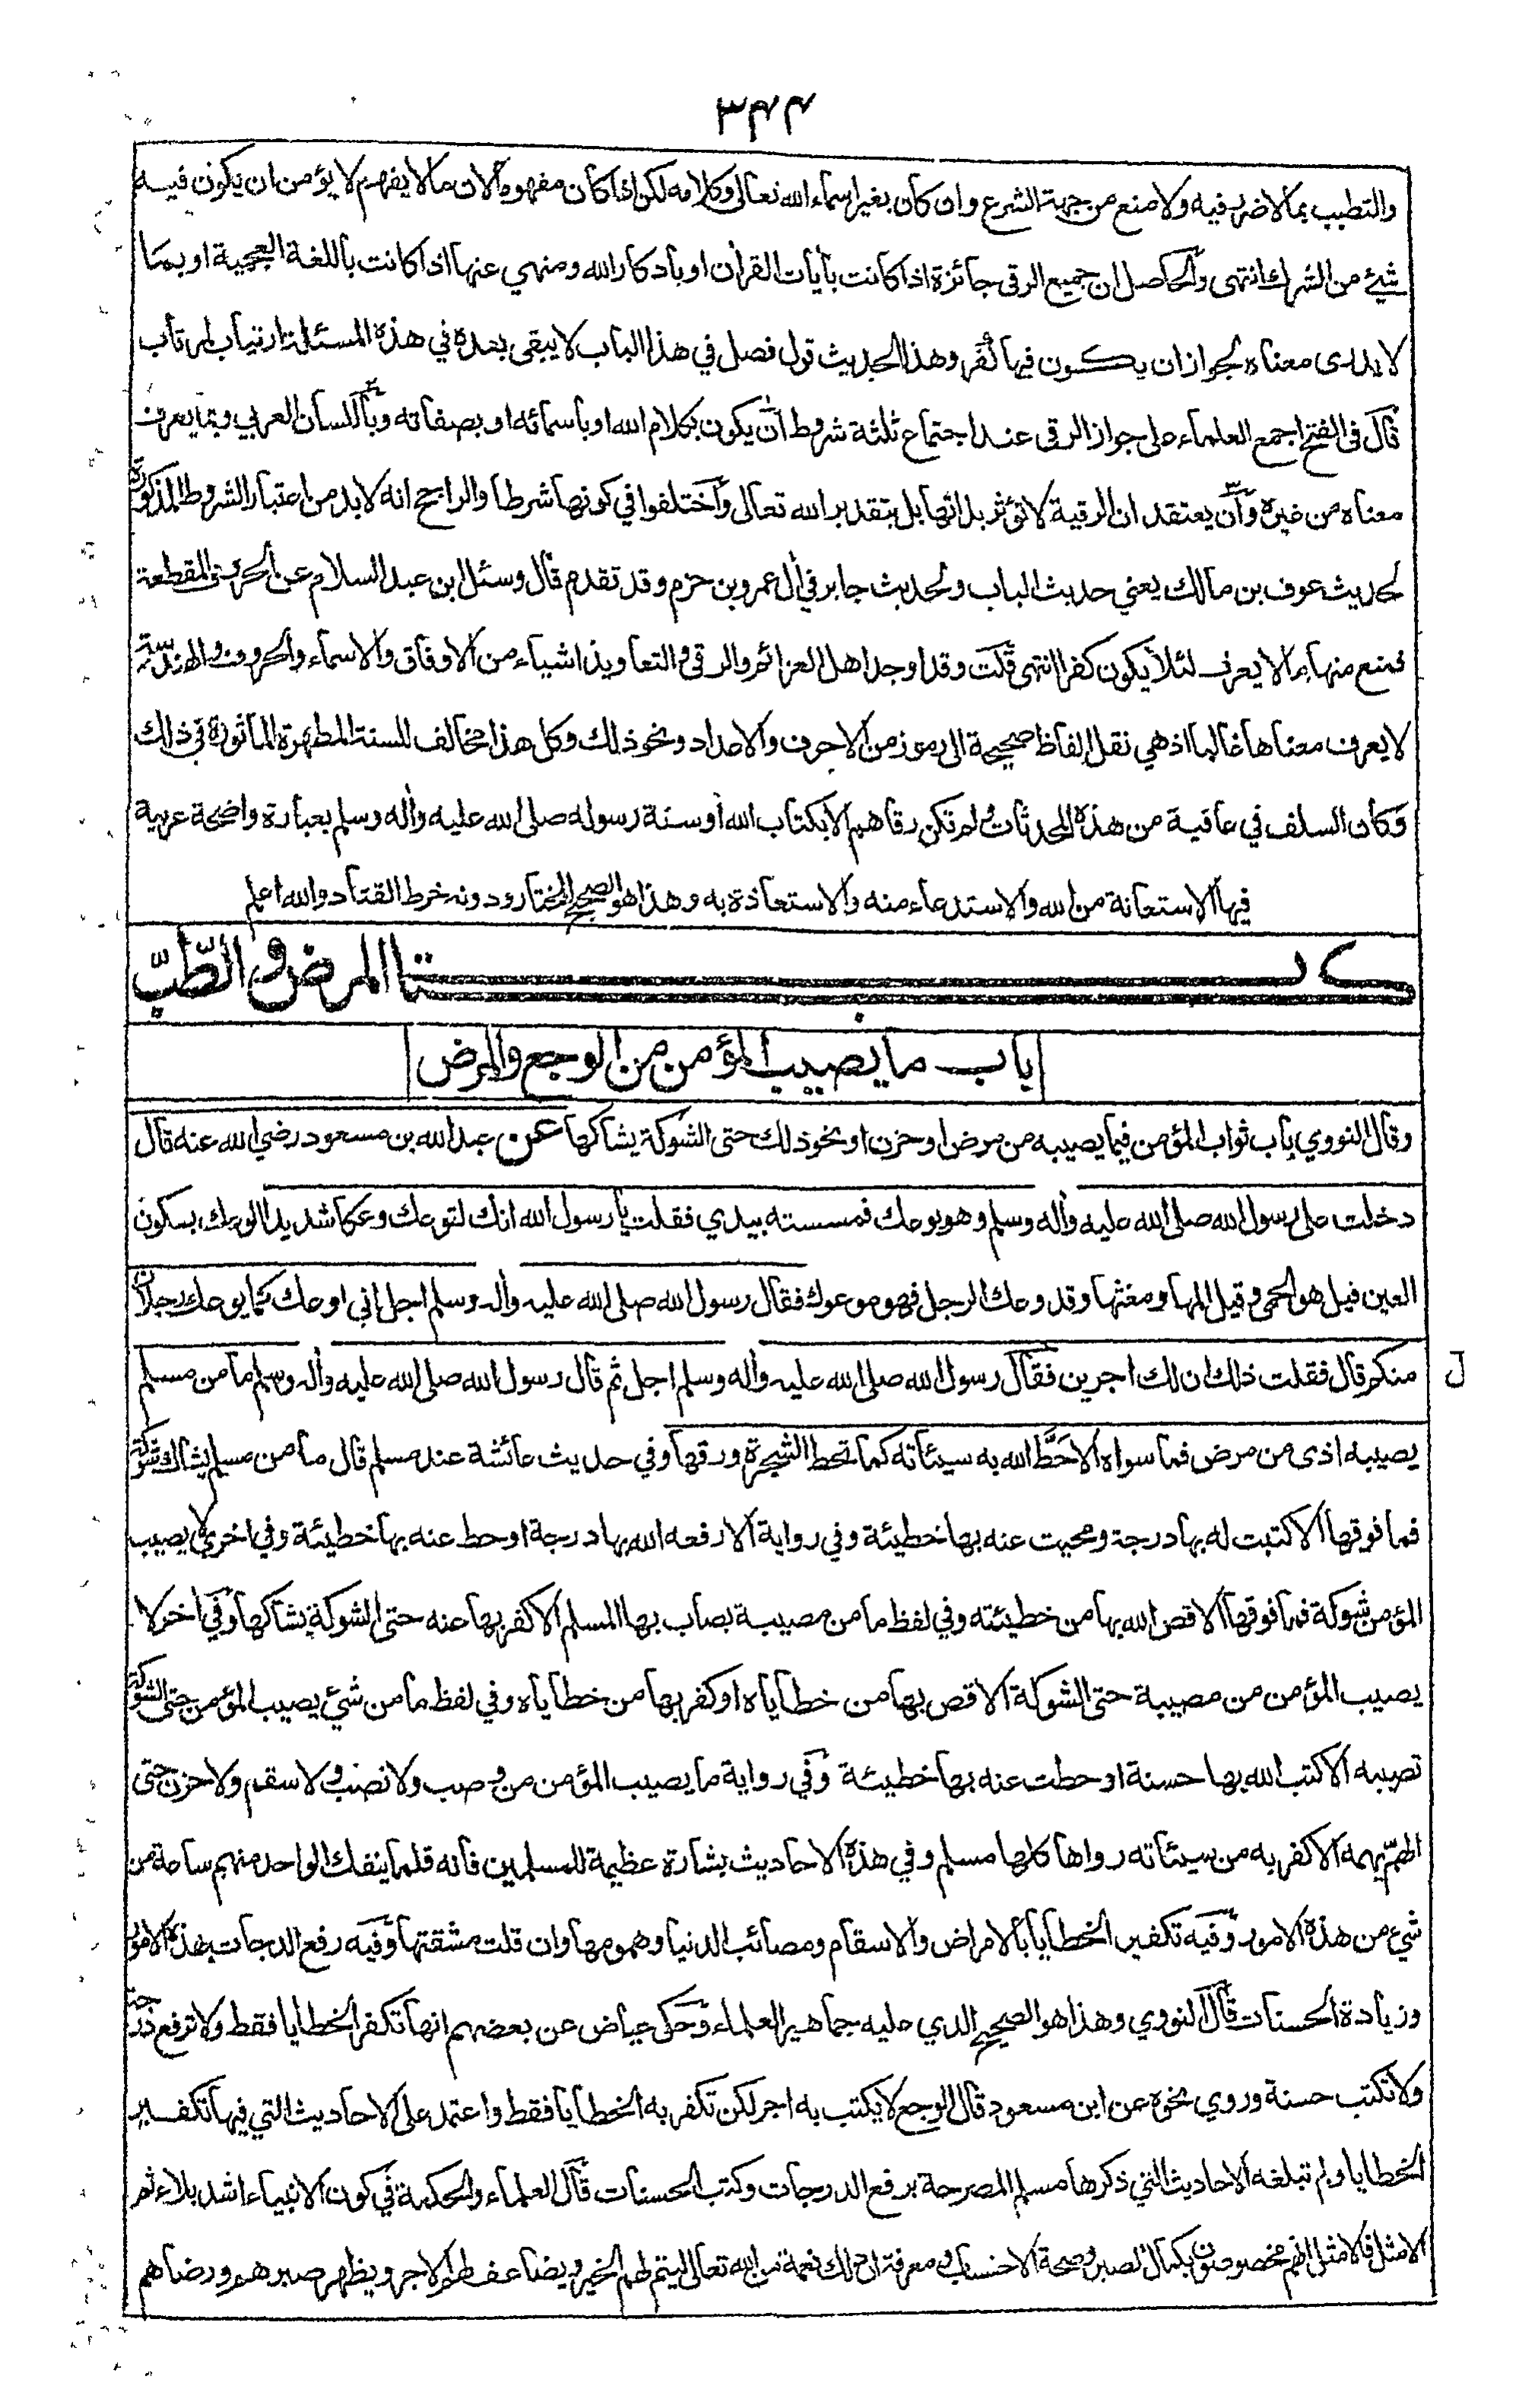 ٣٤٤
والتطبب بما لا ضرر فيه ولا منع من جهة الشرع وان كان بغير اسماء الله تعالى وكلامه لكن اذا كان مفهوما لان ما لا يفهم لا يؤمن ان يكون فيه
شيئ من الشرك انتهى والحاصل ان جميع الرقى جائزة اذا كانت بأيات القرأن او باذكار الله ومنهي عنها اذا كانت باللغة العجمية او بما
لا يدرى معناه لجواز ان يكون فيها كفر وهذا الحديث قول فصل في هذا الباب لا يبقى بعده في هذه المسئلة ارتياب لمرتاب
قال في الفتح اجمع العلماء على جواز الرقى عند اجتماع ثلثة شروط ان يكون بكلام الله او باسمائه او بصفاته وباللسان العربي وبما يعرف
معناه من غيره وأن يعتقد ان الرقية لا تؤثر بذاتها بل بتقدير الله تعالى واختلفوا في كونها شرطا والراجح انه لا بد من اعتبار الشروط المذكورة
لحديث عوف بن مالك يعني حديث الباب ولحديث جابر في أل عمرو بن حزم وقد تقدم قال وسئل ابن عبد السلام عن الحروف المقطعة
فمنع منها ما لا يعرف لئلا يكون كفرا انتهى قلت وقد اوجد اهل العزائم والرقى والتعاويذ اشياء من الاوفاق والاسماء والحروف والهندسة
لا يعرف معناها غالبا اذ هي نقل الفاظ صحيحة الى رموز من الاحرف والاعداد ونحو ذلك وكل هذا مخالف للسنة المطهرة المأثورة في ذلك
وكان السلف في عافية من هذه المحدثات ولم تكن رقاهم الا بكتاب الله او سنة رسوله صلى الله عليه وأله وسلم بعبارة واضحة عربية
فيها الاستعانة من الله والاستدعاء منه والاستعاذة به وهذا هو الصحيح المختار ودونه خرط القتاد والله اعلم
كتاب المرض والطب
باب ما يصيب المؤمن من الوجع والمرض
وقال النووي باب ثواب المؤمن فيما يصيبه من مرض او حزن او نحو ذلك حتى الشوكة يشاكها عن عبد الله بن مسعود رضي الله عنه قال
دخلت على رسول الله صلى الله عليه وأله وسلم وهو يوعك فمسسته بيدي فقلت يا رسول الله انك لتوعك وعكا شديدا الوعك بسكون
العين قيل هو الحمى وقيل المها ومغثها وقد وعك الرجل فهو موعوك فقال رسول الله صلى الله عليه وأله وسلم اجل اني اوعك كما يوعك رجلان
منكم قال فقلت ذلك ان لك اجرين فقال رسول الله صلى الله عليه وأله وسلم اجل ثم قال رسول الله صلى الله عليه وأله وسلم ما من مسلم
ل
يصيبه اذى من مرض فما سواه الا حَطَّ الله به سيئاته كما تحط الشجرة ورقها وفي حديث عائشة عند مسلم قال ما من مسلم يشاك شوكة
فما فوقها الا كتبت له بها درجة ومحيت عنه بها خطيئة وفي رواية الا رفعه الله بها درجة او حط عنه بها خطيئة وفي اخرى لا يصيب
المؤمن شوكة فما فوقها الا قص الله بها من خطيئته وفي لفظ ما من مصيبة يصاب بها المسلم الا كفر بها عنه حتى الشوكة يشاكها وفي اخر لا
يصيب المؤمن من مصيبة حتى الشوكة الا قص بها من خطاياه او كفر بها من خطاياه وفي لفظ ما من شيئ يصيب المؤمن حتى الشوكة
تصيبه الا كتب الله بها حسنة او حطت عنه بها خطيئة وفي رواية ما يصيب المؤمن من وصب ولا نصب ولا سقم ولا حزن حتى
الهمّ يهمه الا كفر به من سيئاته رواها كلها مسلم وفي هذه الاحاديث بشارة عظيمة للمسلمين فانه قلما ينفك الواحد منهم ساعة من
شيئ من هذه الامور وفيه تكفير الخطايا بالامراض والاسقام ومصائب الدنيا وهمومها وان قلت مشقتها وفيه رفع الدرجات بهذه الامور
وزيادة الحسنات قال النووي وهذا هو الصحيح الذي عليه جماهير العلماء وحكى عياض عن بعضهم انها تكفر الخطايا فقط ولا ترفع درجة
ولا تكتب حسنة وروي نحوه عن ابن مسعود قال الوجع لا يكتب به اجر لكن تكفر به الخطايا فقط واعتمد على الاحاديث التي فيها تكفير
الخطايا ولم تبلغه الاحاديث التي ذكرها مسلم المصرحة برفع الدرجات وكتب الحسنات قال العلماء والحكمة في كون الانبياء اشد بلاء ثم
الامثل فالامثل انهم مخصوصون بكمال الصبر وصحة الاحتساب ومعرفة ان ذلك نعمة من الله تعالى ليتم لهم الخير ويضاعف لهم الاجر ويظهر صبرهم ورضاهم